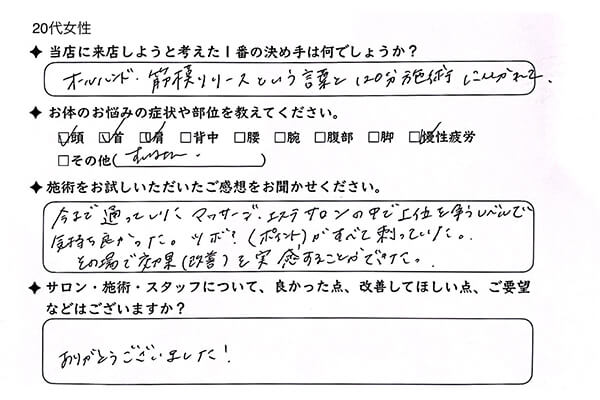 20代女性
✦ 当店に来店しようと考えた1番の決め手は何でしょうか？
オールハンド・筋膜リリースという言葉と120分施術にひかれて、
✦ お体のお悩みの症状や部位を教えてください。
☑頭 ☑首 ☑肩 □背中 □腰 □腕 □腹部 □脚 ☑慢性疲労
□その他( )
✦ 施術をお試しいただいたご感想をお聞かせください。
今まで通っていた マッサージ・エステサロンの中で上位を争うレベルで
気持ち良かった。ツボ？(ポイント)がすべて刺っていた。
その場で効果(改善)を実感することができた。
✦ サロン・施術・スタッフについて、良かった点、改善してほしい点、ご要望
などはございますか？
ありがとうございました！